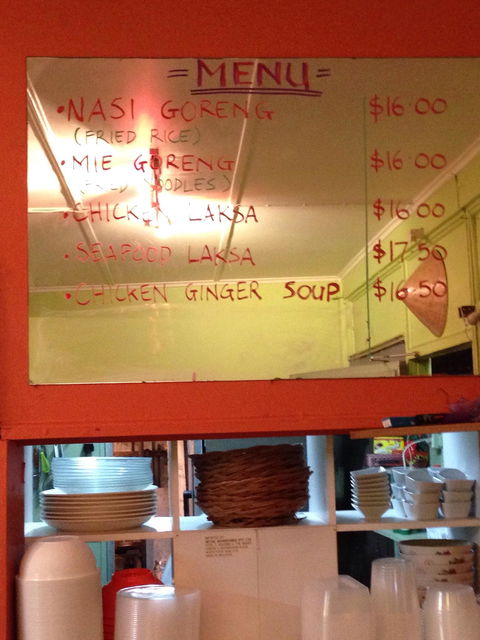 = MENU =
• NASI GORENG $16.00
(FRIED RICE)
• MIE GORENG $16.00
(FRIED NOODLES)
• CHICKEN LAKSA $16.00
• SEAFOOD LAKSA $17.50
• CHICKEN GINGER SOUP $16.50